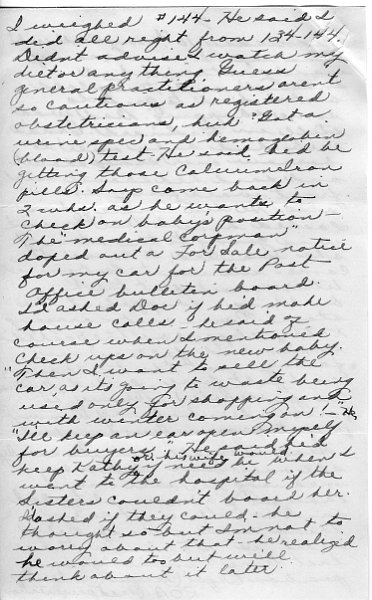 I weighed #144 - He said I
did all right from 134-144.
Didn't advise I watch my
diet or any thing. Guess
general practitioners aren't
so cautious as registered
obstetricians, huh? Got a
urine spec and hemoglobin
(blood) test. He said he'd be
getting those Calcium & Iron
pills. I may come back in
2 wks. as he wants to
check on baby's position -
The "medical corpman"
doped out a For Sale notice
for my car for the Post
Office bulletin board.
I'd asked Doc if he'd make
house calls - he said of
course when I mentioned
Check ups on the new baby.
"Then I want to sell the
car, as it's going to waste being
used only for shopping and -
with winter coming on!" - "He
"I'll keep an ear open myself
for buyers". He said he'd
or his wife would
keep Kathy if need be when I
went to the hospital if the
Sisters couldn't board her.
I'd asked if they could - he
thought so - but I'm not to
worry about that - he realized
he would too but will
think about it later.